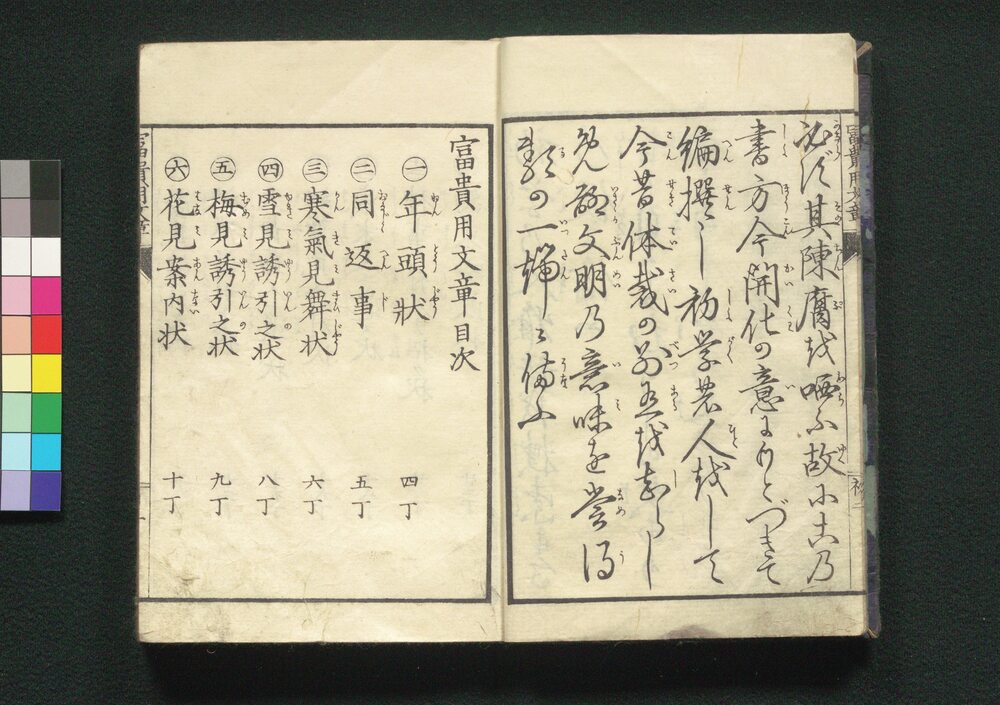 富貴用文章
必ず其陳腐を哂ふ故に古乃
書方今開化の意にもとづきて
編撰し初学農人をして
今昔体裁の別を知らし
め聊文明乃意味を嘗得
類の一端に備ふ
富貴用文章目次
㊀年頭状 四丁
㊁同返事 五丁
㊂寒氣見舞状 六丁
㊃雪見誘引之状 八丁
㊄梅見誘引之状 九丁
㊅花見案内状 十丁
富貴用文章